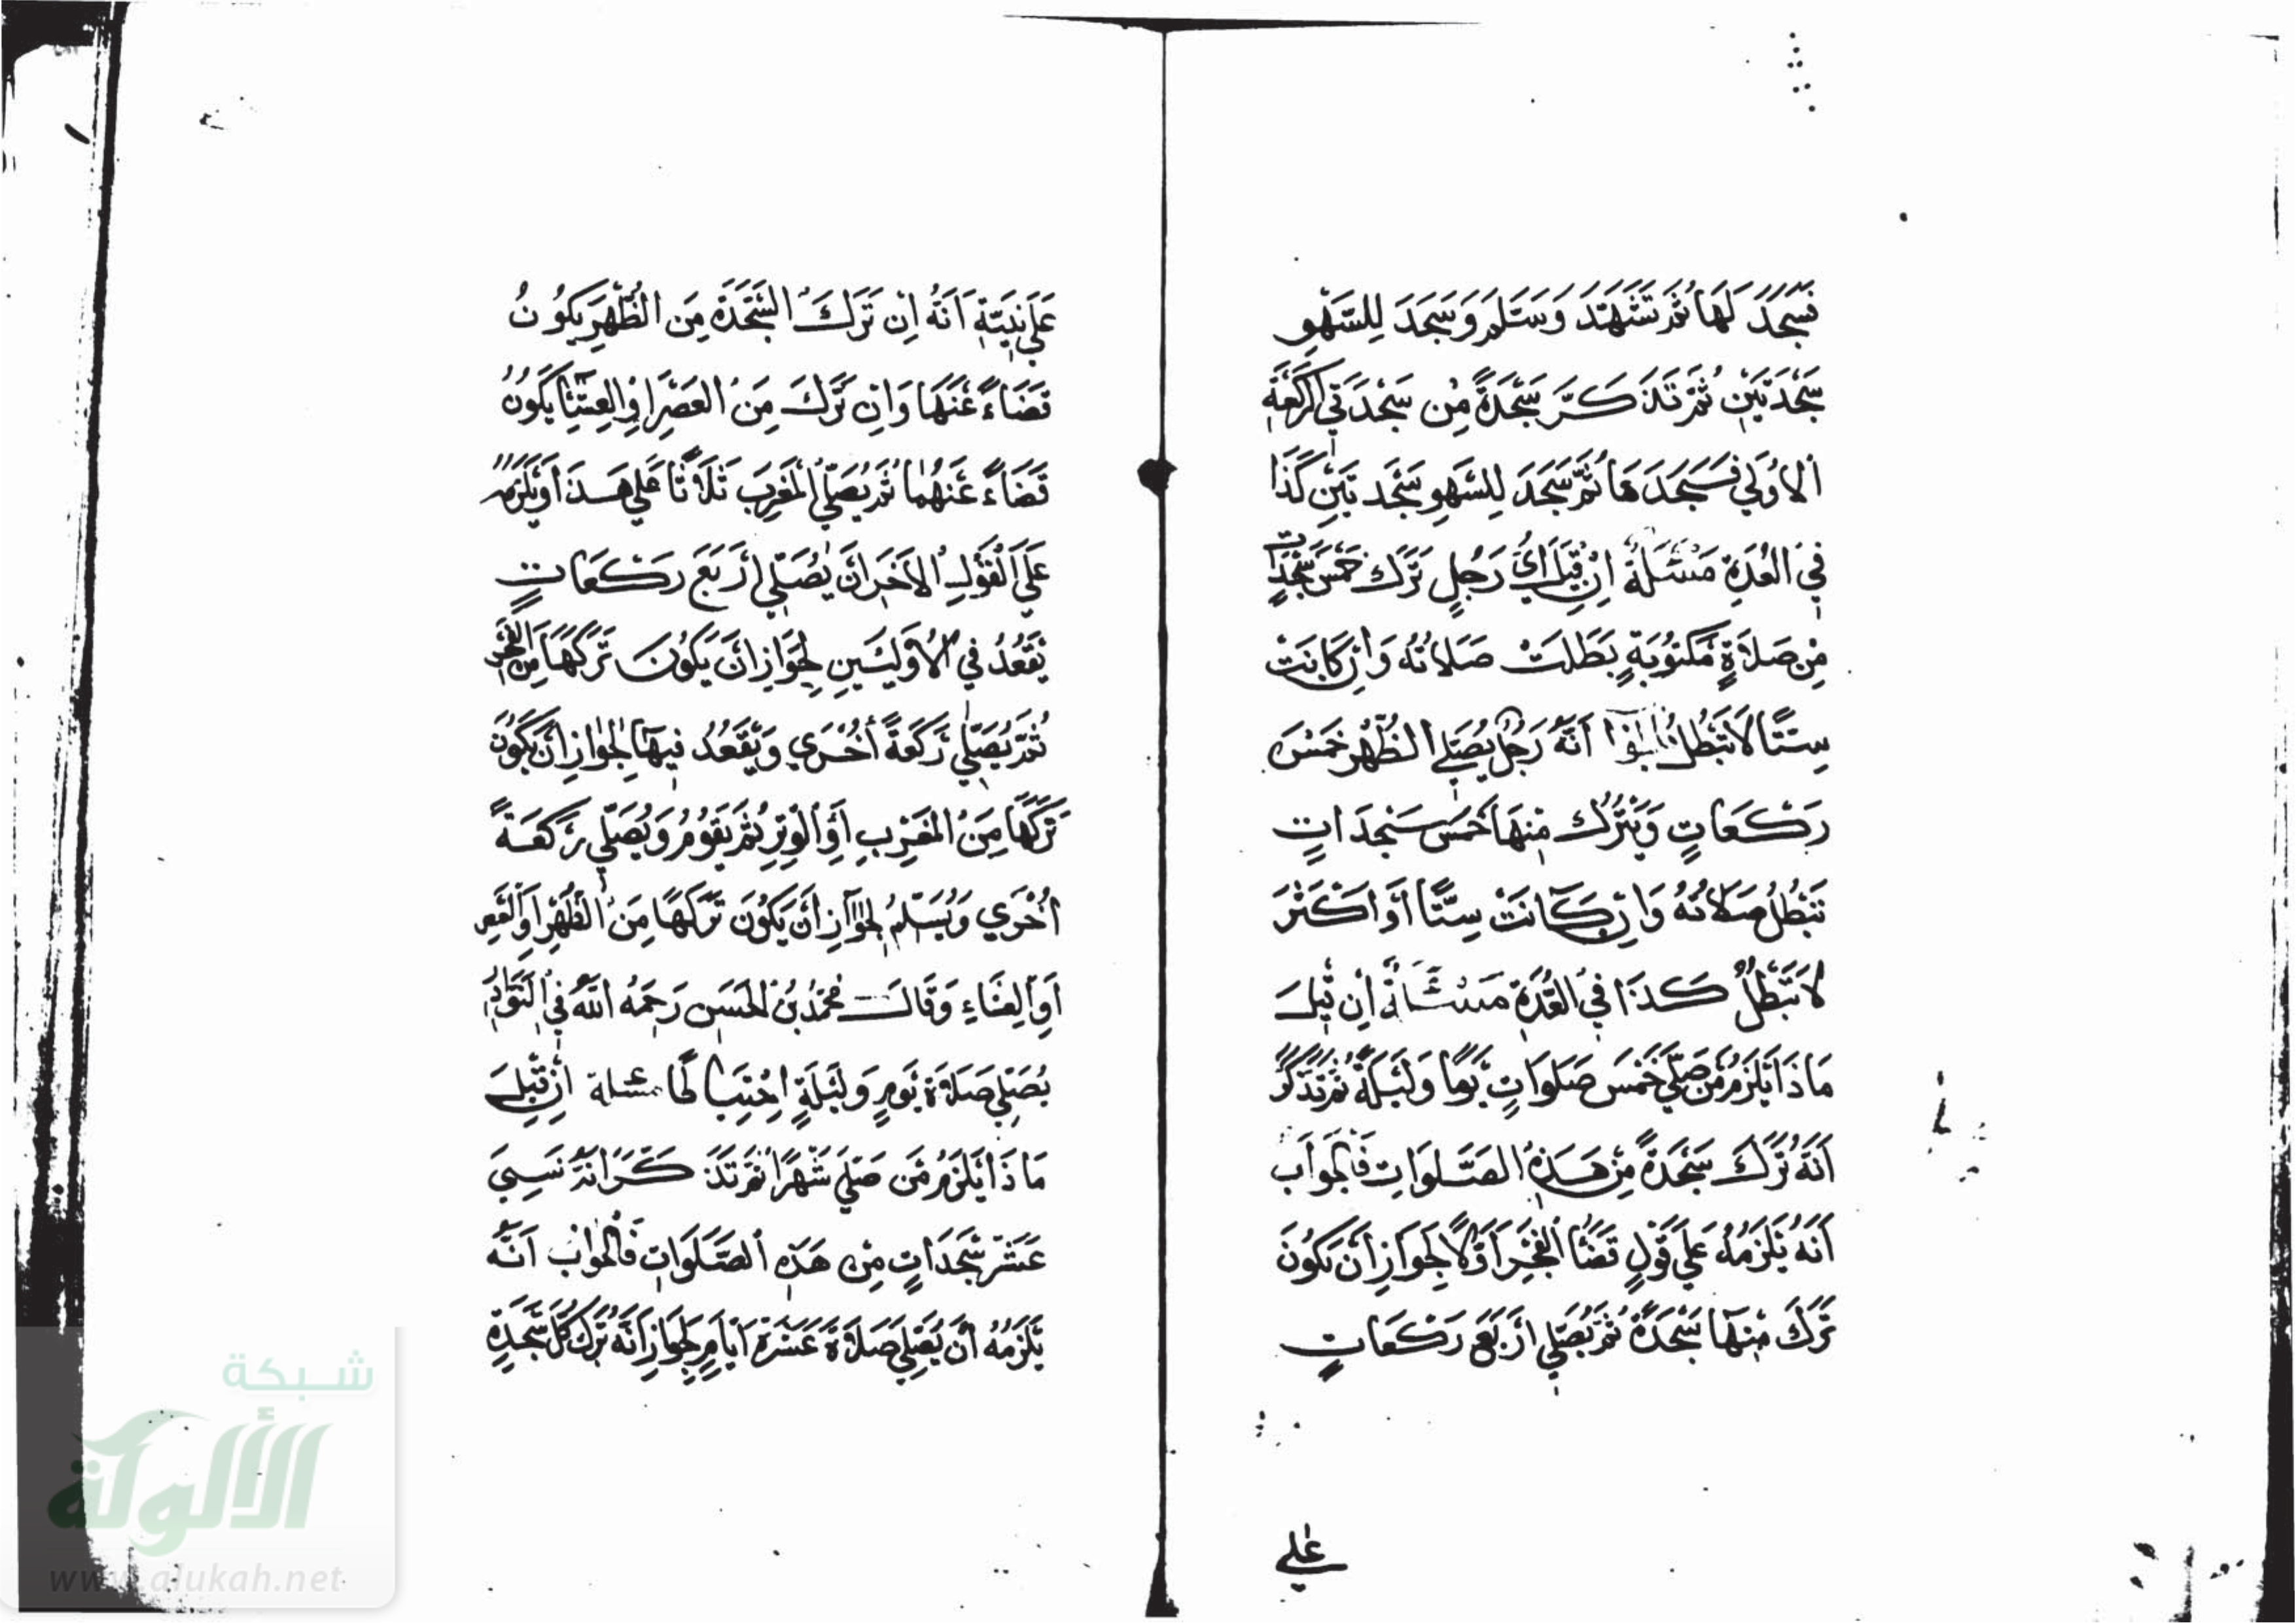 فَسَجَدَ لَهَا ثُمَّ تَشَهَّدَ وَسَلَّمَ وَسَجَدَ لِلسَّهْوِ
سَجْدَتَيْنِ ثُمَّ تَذَكَّرَ سَجْدَةً مِنْ سَجْدَتَي الرَّكْعَةِ
الاُوْلَي فَسَجَدَهَا ثُمَّ سَجَدَ لِلسَّهْوِ سَجْدَتَيْنِ كَذَا
فِي العُدَّةِ مَسْئَلَةٌ اِنْ قِيْلَ اَيُّ رَجُلٍ تَرَكَ خَمْسَ سَجَدَاتٍ
مِنْ صَلَاةٍ مَكْتُوبَةٍ بَطَلَتْ صَلَاتُهُ وَاِنْ كَانَتْ
سِتًّا لَا تَبْطُلُ فالجواب اَنَّهُ رَجُلٌ يُصَلِّي الظُّهْرَ خَمْسَ
رَكَعَاتٍ وَيَتْرُكُ مِنْهَا خَمْسَ سَجَدَاتٍ
تَبْطُلُ صَلَاتُهُ وَاِنْ كَانَتْ سِتًّا أَوْ اَكْثَرَ
لَا تَبْطُلُ كَذَا فِي العُدَّةِ مَسْئَلَةٌ اِنْ قِيْلَ
مَا ذَا يَلْزَمُ مَنْ صَلَّي خَمْسَ صَلَوَاتٍ يَوْمًا وَلَيْلَةً ثُمَّ تَذَكَّرَ
اَنَّهُ تَرَكَ سَجْدَةً مِنْ هَذِهِ الصَّلَوَاتِ فَالْجَوَابُ
اَنَّهُ يَلْزَمُهُ عَلَي قَوْلٍ قَضَاءُ الْفَجْرِ اَوَّلًا لِجَوَازِ أَنْ يَكُونَ
تَرَكَ مِنْهَا سَجْدَةً ثُمَّ يُصَلِّي اَرْبَعَ رَكَعَاتٍ
عَلي
عَلَي نِيَّةِ اَنَّهُ اِنْ تَرَكَ السَّجْدَةَ مِنَ الظُّهْرِ يَكُونُ
قَضَاءً عَنْهَا وَاِنْ تَرَكَ مِنَ العَصْرِ اَوِ العِشَاءِ يَكُونُ
قَضَاءً عَنْهُمَا ثُمَّ يُصَلِّي الْمَغْرِبَ ثَلَاثًا عَلَي هَذَا وَيَلْزَمُهُ
عَلَي الْقَوْلِ الاَخَرِ أَنْ يُصَلِّي اَرْبَعَ رَكَعَاتٍ
يَقْعُدُ فِي الْاُوْلَيَيْنِ لِجَوَازِ اَنْ يَكُونَ تَرَكَهَا مِنَ الفَجْرِ
ثُمَّ يُصَلِّي رَكْعَةً أُخْرَي وَيَقْعُدُ فِيْهَا لِجَوَازِ أَنْ يَكُونَ
تَرَكَهَا مِنَ الْمَغْرِبِ أَوِ الْوِتْرِ ثُمَّ يَقُوْمُ وَيُصَلِّي رَكْعَةً
اُخْرَي وَيُسَلِّمُ لِجَوَازِ أَنْ يَكُوْنَ تَرَكَهَا مِنَ الظُّهْرِ اَوِ الْعَصْرِ
اَوِ الْعِشَاءِ وَقَالَ مُحَمَّدُ بْنُ الحَسَنِ رَحِمَهُ اللَّهُ فِي النَّوَادِرِ
يُصَلِّي صَلَاةَ يَوْمٍ وَلَيْلَةٍ اِحْتِيَاطًا مسئلة اِنْ قِيْلَ
مَا ذَا يَلْزَمُ مَنْ صَلَّي شَهْرًا ثُمَّ تَذَكَّرَ اَنَّهُ نَسِيَ
عَشَرَ سَجَدَاتٍ مِنْ هَذِهِ الصَّلَوَاتِ فَالْجَوَابُ اَنَّهُ
يَلْزَمُهُ أَنْ يُصَلِّي صَلَاةَ عَشَرَةِ اَيَّامٍ لِجَوَازِ اَنَّهُ تَرَكَ كُلَّ سَجْدَةٍ
شبكة
الألوكة
www.alukah.net